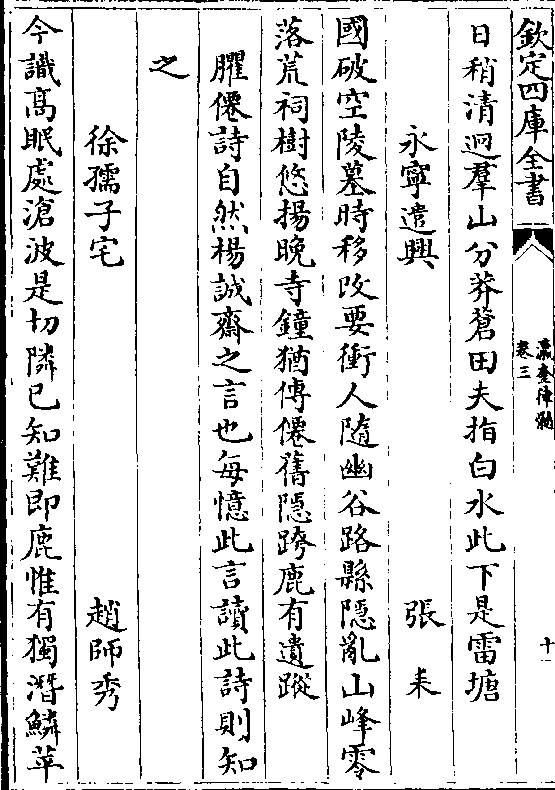 欽定四庫全書
瀛奎律髓
卷三
十一
日稍清迥羣山分莽蒼田夫指白水此下是雷塘
永寧遣興　張耒
國破空陵墓時移改要衝人隨幽谷路縣隱亂山峰零
落荒祠樹悠揚晚寺鐘猶傳僊舊隱跨鹿有遺蹤
臞僊詩自然楊誠齋之言也每憶此言讀此詩則知
之
徐孺子宅　趙師秀
今識髙眠處滄波是切隣已知難即鹿惟有獨潛鱗苹